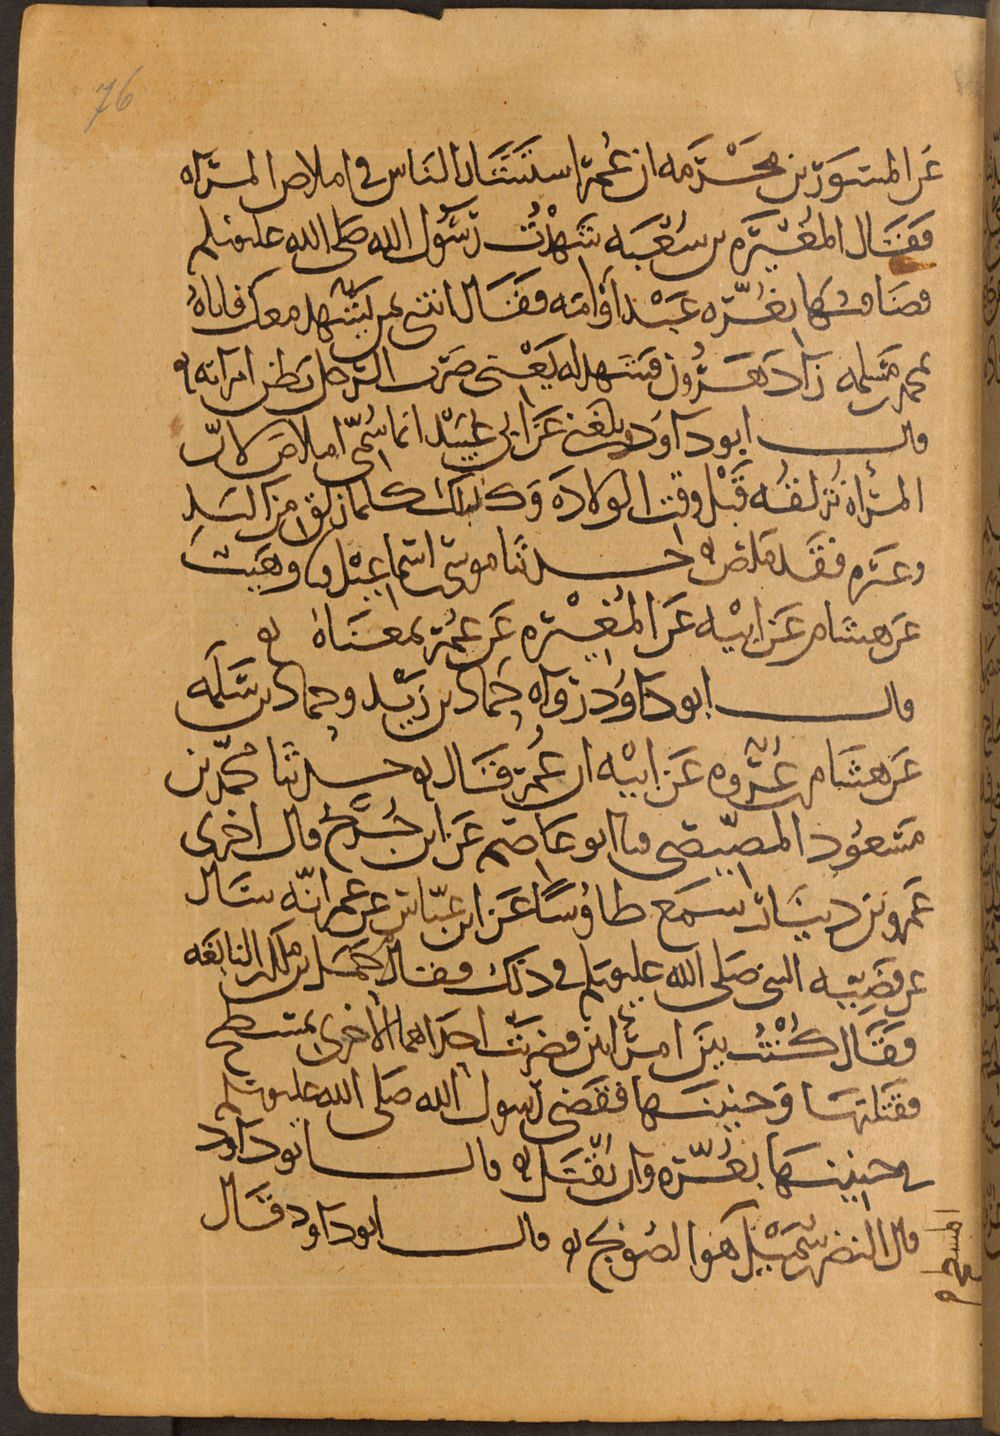 76
عن المسور بن مخرمه ان عمر استشار الناس في املاص المرأه
فقال المغيره بن شعبه شهدت رسول الله صلى الله عليه وسلم
قضا فيها بغره عبد او امه فقال ائتني بمن يشهد معك فاتاه
بمحمد بن مسلمه زاد هرون فشهد له يعني ضرب الرجل بطن امراته
قال ابو داود بلغني عن ابي عبيد انما سمي املاص لان
المرأة تزلقه قبل وقت الولاده وكذلك كلما زلق من اليد
وغيره فقد ملص حدثنا موسى بن اسماعيل ثنا وهيب
عن هشام عن ابيه عن المغيره عن عمر بمعناه
قال ابو داود رواه حماد بن زيد وحماد بن سلمه
عن هشام بن عروه عن ابيه ان عمر قال حدثنا محمد بن
مسعود المصيصي ثنا ابو عاصم عن ابن جريج قال اخبرني
عمرو بن دينار سمع طاوسا عن ابن عباس عن عمر انه سال
عن قضيه النبي صلى الله عليه وسلم في ذلك فقال حمل بن ملك بن النابغه
فقال كنت بين امرأتين فضربت احداهما الاخرى بمسطح
فقتلتها وجنينها فقضى رسول الله صلى الله عليه وسلم
في جنينها بغره وان تقتل قال ابو داود
قال النضر بن شميل هو الصوبج قال ابو داود قال
المسطح